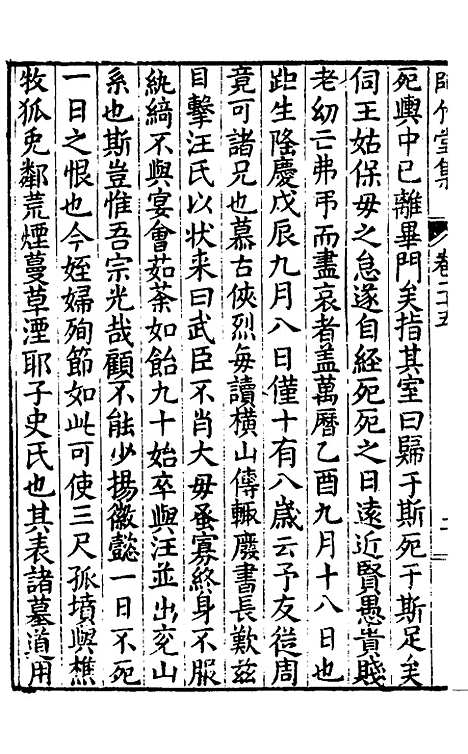 師竹堂集 卷二十五
死輿中已離畢門矣指其室曰歸于斯死于斯足矣
伺王姑保毋之怠遂自經死死之日遠近賢愚貴賤
老幼亡弗弔而盡哀者盖萬曆乙酉九月十八日也
距生隆慶戊辰九月八日僅十有八歲云予友從周
竟可諸兄也慕古俠烈毎讀橫山傳輙廢書長歎兹
目擊汪氏以狀来曰武臣不肖大毋蚤寡終身不服
紈綺不與宴會茹荼如飴九十始卒與汪並出兖山
系也斯豈惟吾宗光哉顧不能少揚徽懿一日不死
一日之恨也今姪婦殉節如此可使三尺孤墳與樵
牧狐兎鄰荒煙蔓草湮耶子史氏也其表諸墓道用